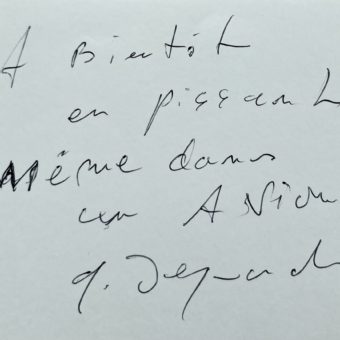 A Bientôt
en pissant
Même dans
un AVion
G.